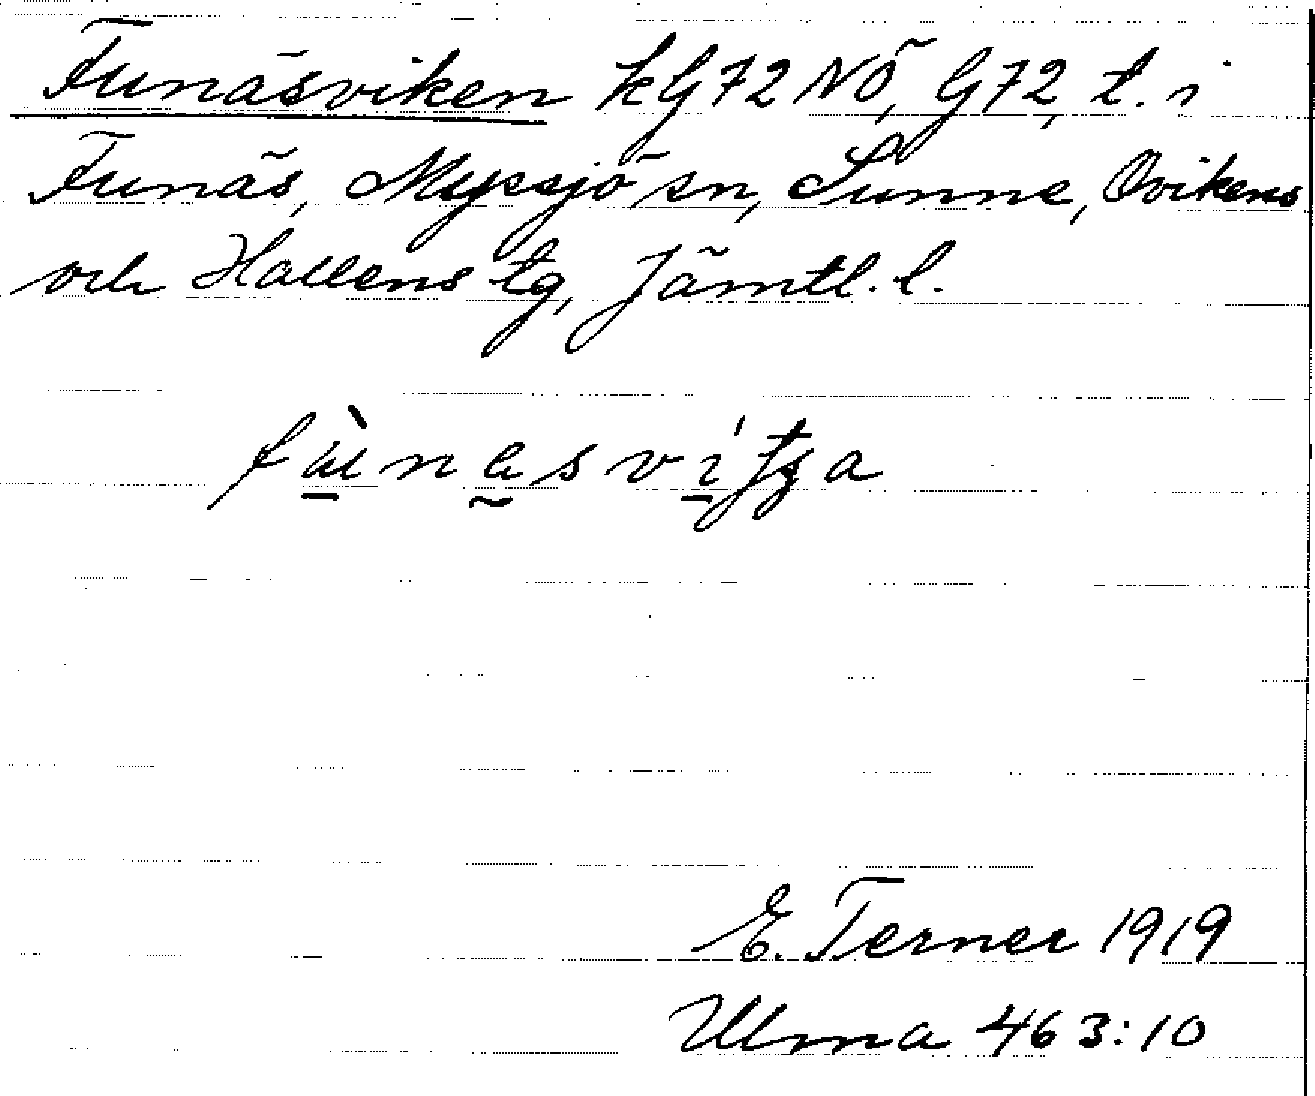 Funäsviken kG72NÖ, G72, t. i
Funäs, Myssjö sn, Sunne, Ovikens
och Hallens tg, Jämtl. l.
E. Terner 1919
Ulma 463:10